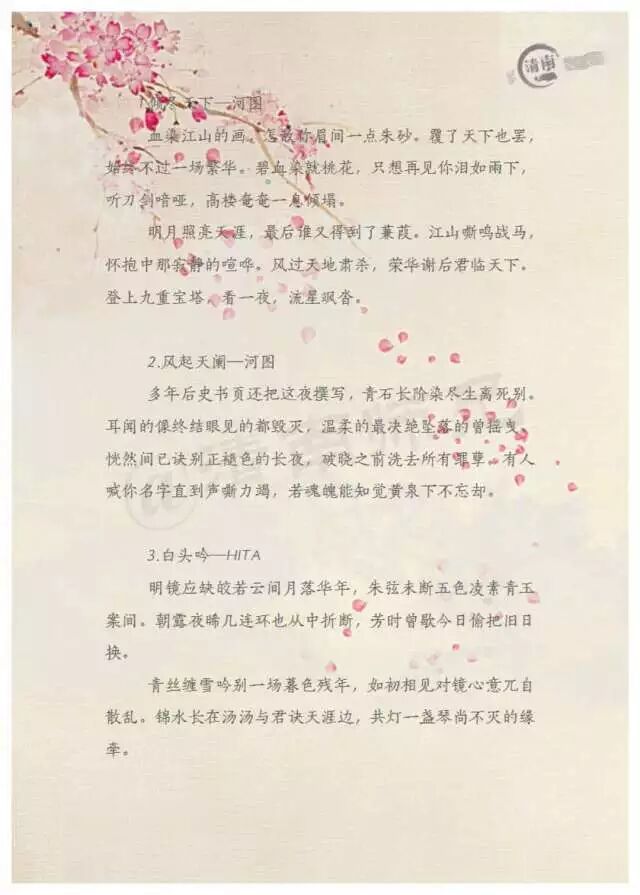 清雨
1.倾尽天下—河图
血染江山的画，怎敌你眉间一点朱砂。覆了天下也罢，
始终不过一场繁华。碧血染就桃花，只想再见你泪如雨下，
听刀剑喑哑，高楼奄奄一息倾塌。
明月照亮天涯，最后谁又得到了蒹葭。江山嘶鸣战马，
怀抱中那寂静的喧哗。风过天地肃杀，荣华谢后君临天下。
登上九重宝塔，看一夜，流星飒沓。
2.风起天阑—河图
多年后史书页还把这夜撰写，青石长阶染尽生离死别。
耳闻的像终结眼见的都毁灭，温柔的最决绝坠落的曾摇曳。
恍然间已诀别正褪色的长夜，破晓之前洗去所有罪孽。有人
喊你名字直到声嘶力竭，若魂魄能知觉黄泉下不忘却。
3.白头吟—HITA
明镜应缺皎若云间月落华年，朱弦未断五色凌素青玉
案间。朝露夜晞几连环也从中折断，芳时曾歇今日偷把旧日
换。
青丝缠雪吟别一场暮色残年，如初相见对镜心意兀自
散乱。锦水长在汤汤与君诀天涯边，共灯一盏琴尚不灭的缘
牵。